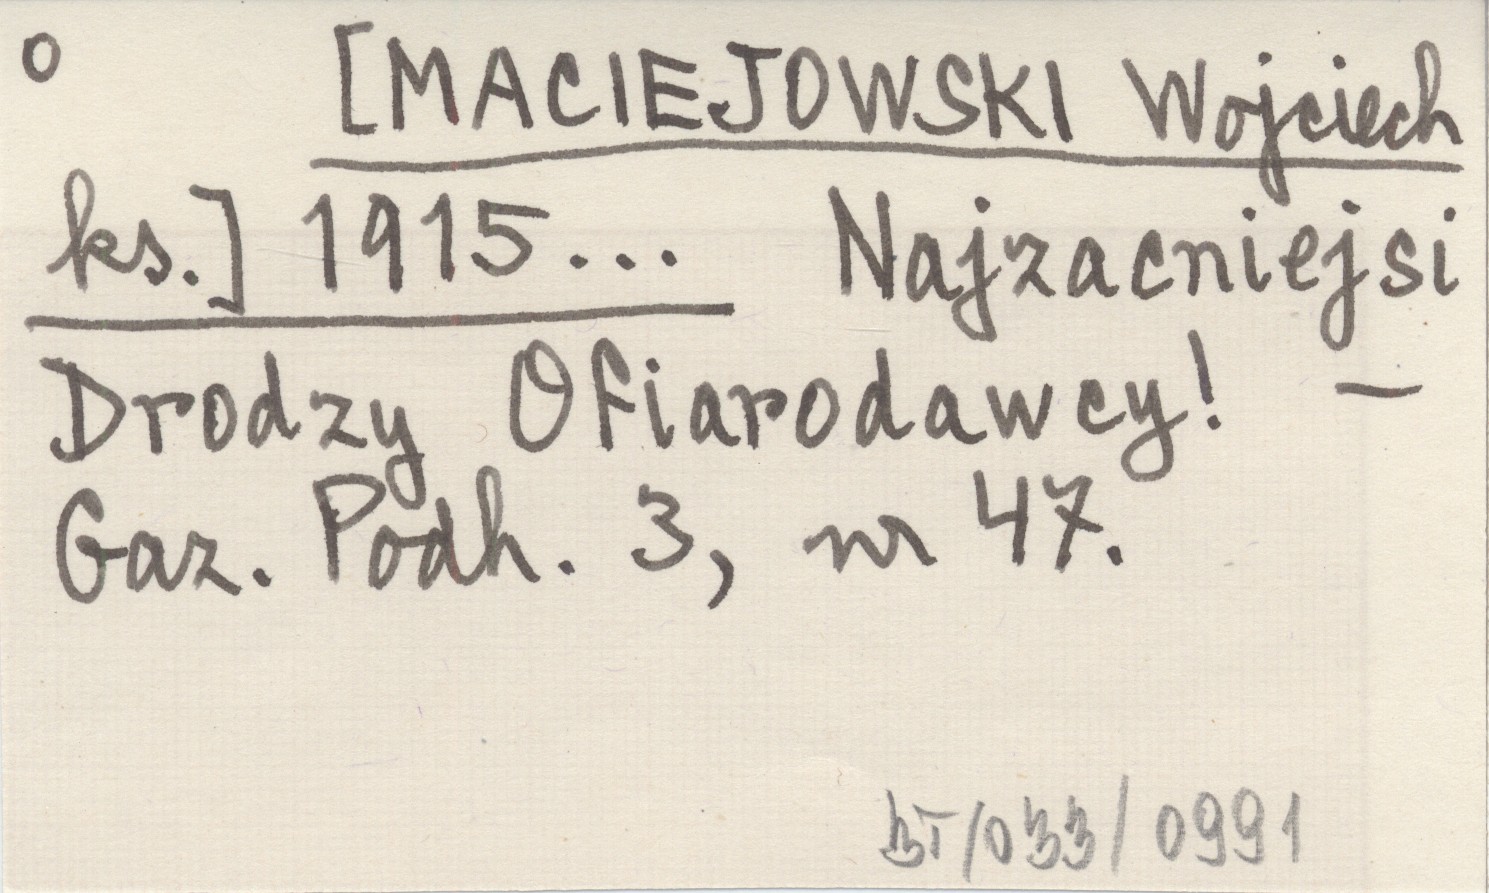 o [MACIEJOWSKI Wojciech
ks.] 1915... Najzacniejsi
Drodzy Ofiarodawcy! –
Gaz. Podh. 3, nr 47.
BT/033/0991